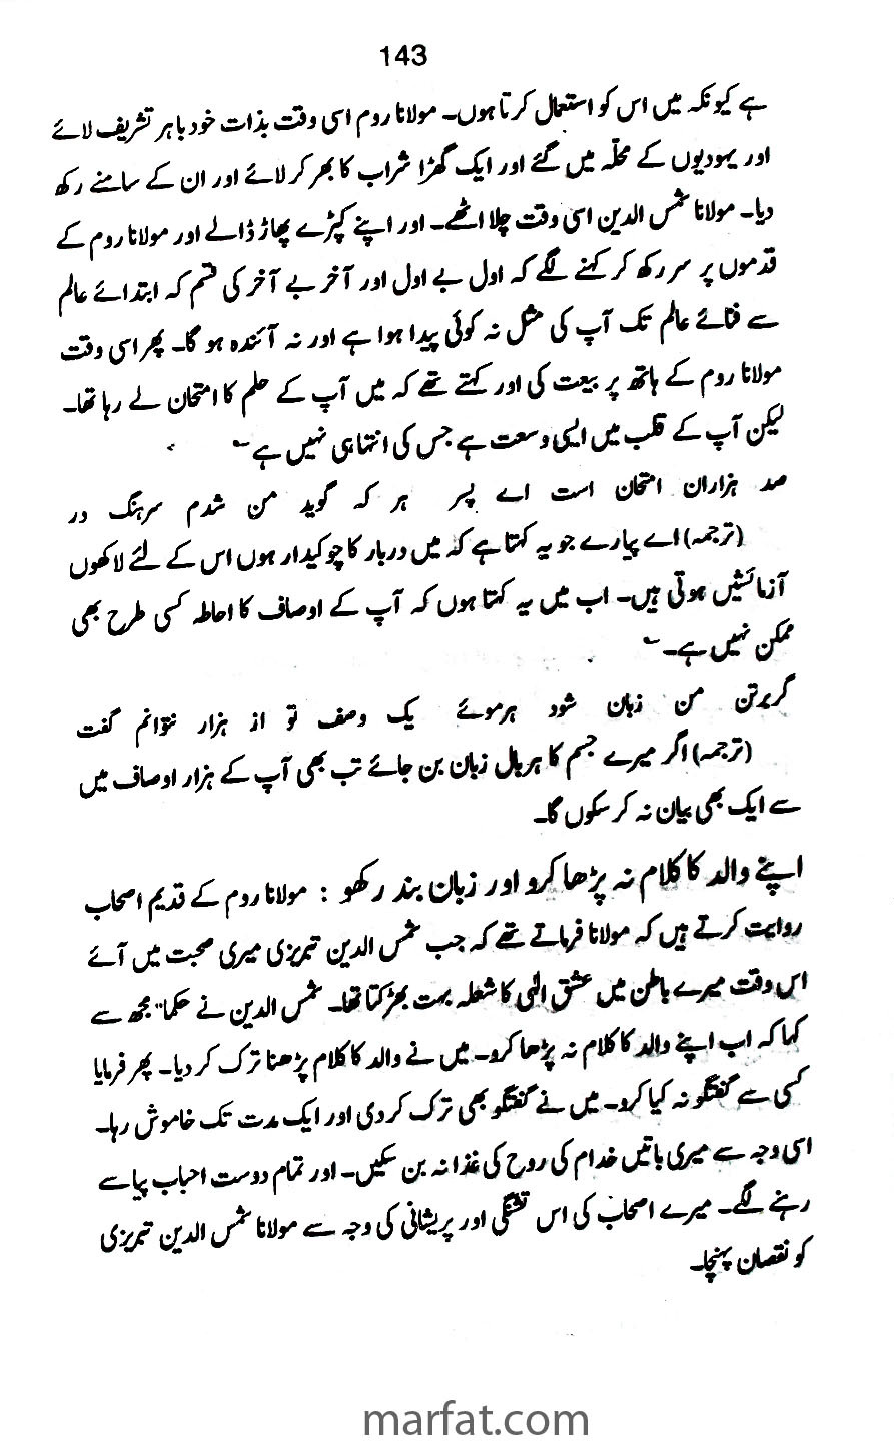 143
ہے کیونکہ میں اس کو استعمال کرتا ہوں۔ مولانا روم اسی وقت بذات خود باہر تشریف لائے
اور یہودیوں کے محلّہ میں گئے اور ایک گھڑا شراب کا بھر کر لائے اور ان کے سامنے رکھ
دیا۔ مولانا شمس الدین اسی وقت چلا اٹھے۔ اور اپنے کپڑے پھاڑ ڈالے اور مولانا روم کے
قدموں پر سر رکھ کر کہنے لگے کہ اول بے اول اور آخر بے آخر کی قسم کہ ابتدائے عالم
سے فنائے عالم تک آپ کی مثل نہ کوئی پیدا ہوا ہے اور نہ آئندہ ہو گا۔ پھر اسی وقت
مولانا روم کے ہاتھ پر بیعت کی اور کہتے تھے کہ میں آپ کے حلم کا امتحان لے رہا تھا۔
لیکن آپ کے قلب میں ایسی وسعت ہے جس کی انتہا ہی نہیں ہے ؎
صد ہزاران امتحان است اے پسر ہر کہ گوید من شدم سرہنگ در
(ترجمہ) اے پیارے جو یہ کہتا ہے کہ میں دربار کا چوکیدار ہوں اس کے لئے لاکھوں
آزمائشیں ہوتی ہیں۔ اب میں یہ کہتا ہوں کہ آپ کے اوصاف کا احاطہ کسی طرح بھی
ممکن نہیں ہے۔ ؎
گر برتن من زبان شود ہر موئے یک وصف تو از ہزار نتوانم گفت
(ترجمہ) اگر میرے جسم کا ہر بال زبان بن جائے تب بھی آپ کے ہزار اوصاف میں
سے ایک بھی بیان نہ کر سکوں گا۔
اپنے والد کا کلام نہ پڑھا کرو اور زبان بند رکھو : مولانا روم کے قدیم اصحاب
روایت کرتے ہیں کہ مولانا فرماتے تھے کہ جب شمس الدین تبریزی میری صحبت میں آئے
اس وقت میرے باطن میں عشق الٰہی کا شعلہ بہت بھڑکتا تھا۔ شمس الدین نے حکماً مجھ سے
کہا کہ اب اپنے والد کا کلام نہ پڑھا کرو۔ میں نے والد کا کلام پڑھنا ترک کر دیا۔ پھر فرمایا
کسی سے گفتگو نہ کیا کرو۔ میں نے گفتگو بھی ترک کر دی اور ایک مدت تک خاموش رہا۔
اسی وجہ سے میری باتیں خدام کی روح کی غذا نہ بن سکیں۔ اور تمام دوست احباب پیاسے
رہنے لگے۔ میرے اصحاب کی اس تشنگی اور پریشانی کی وجہ سے مولانا شمس الدین تبریزی
کو نقصان پہنچا۔
marfat.com